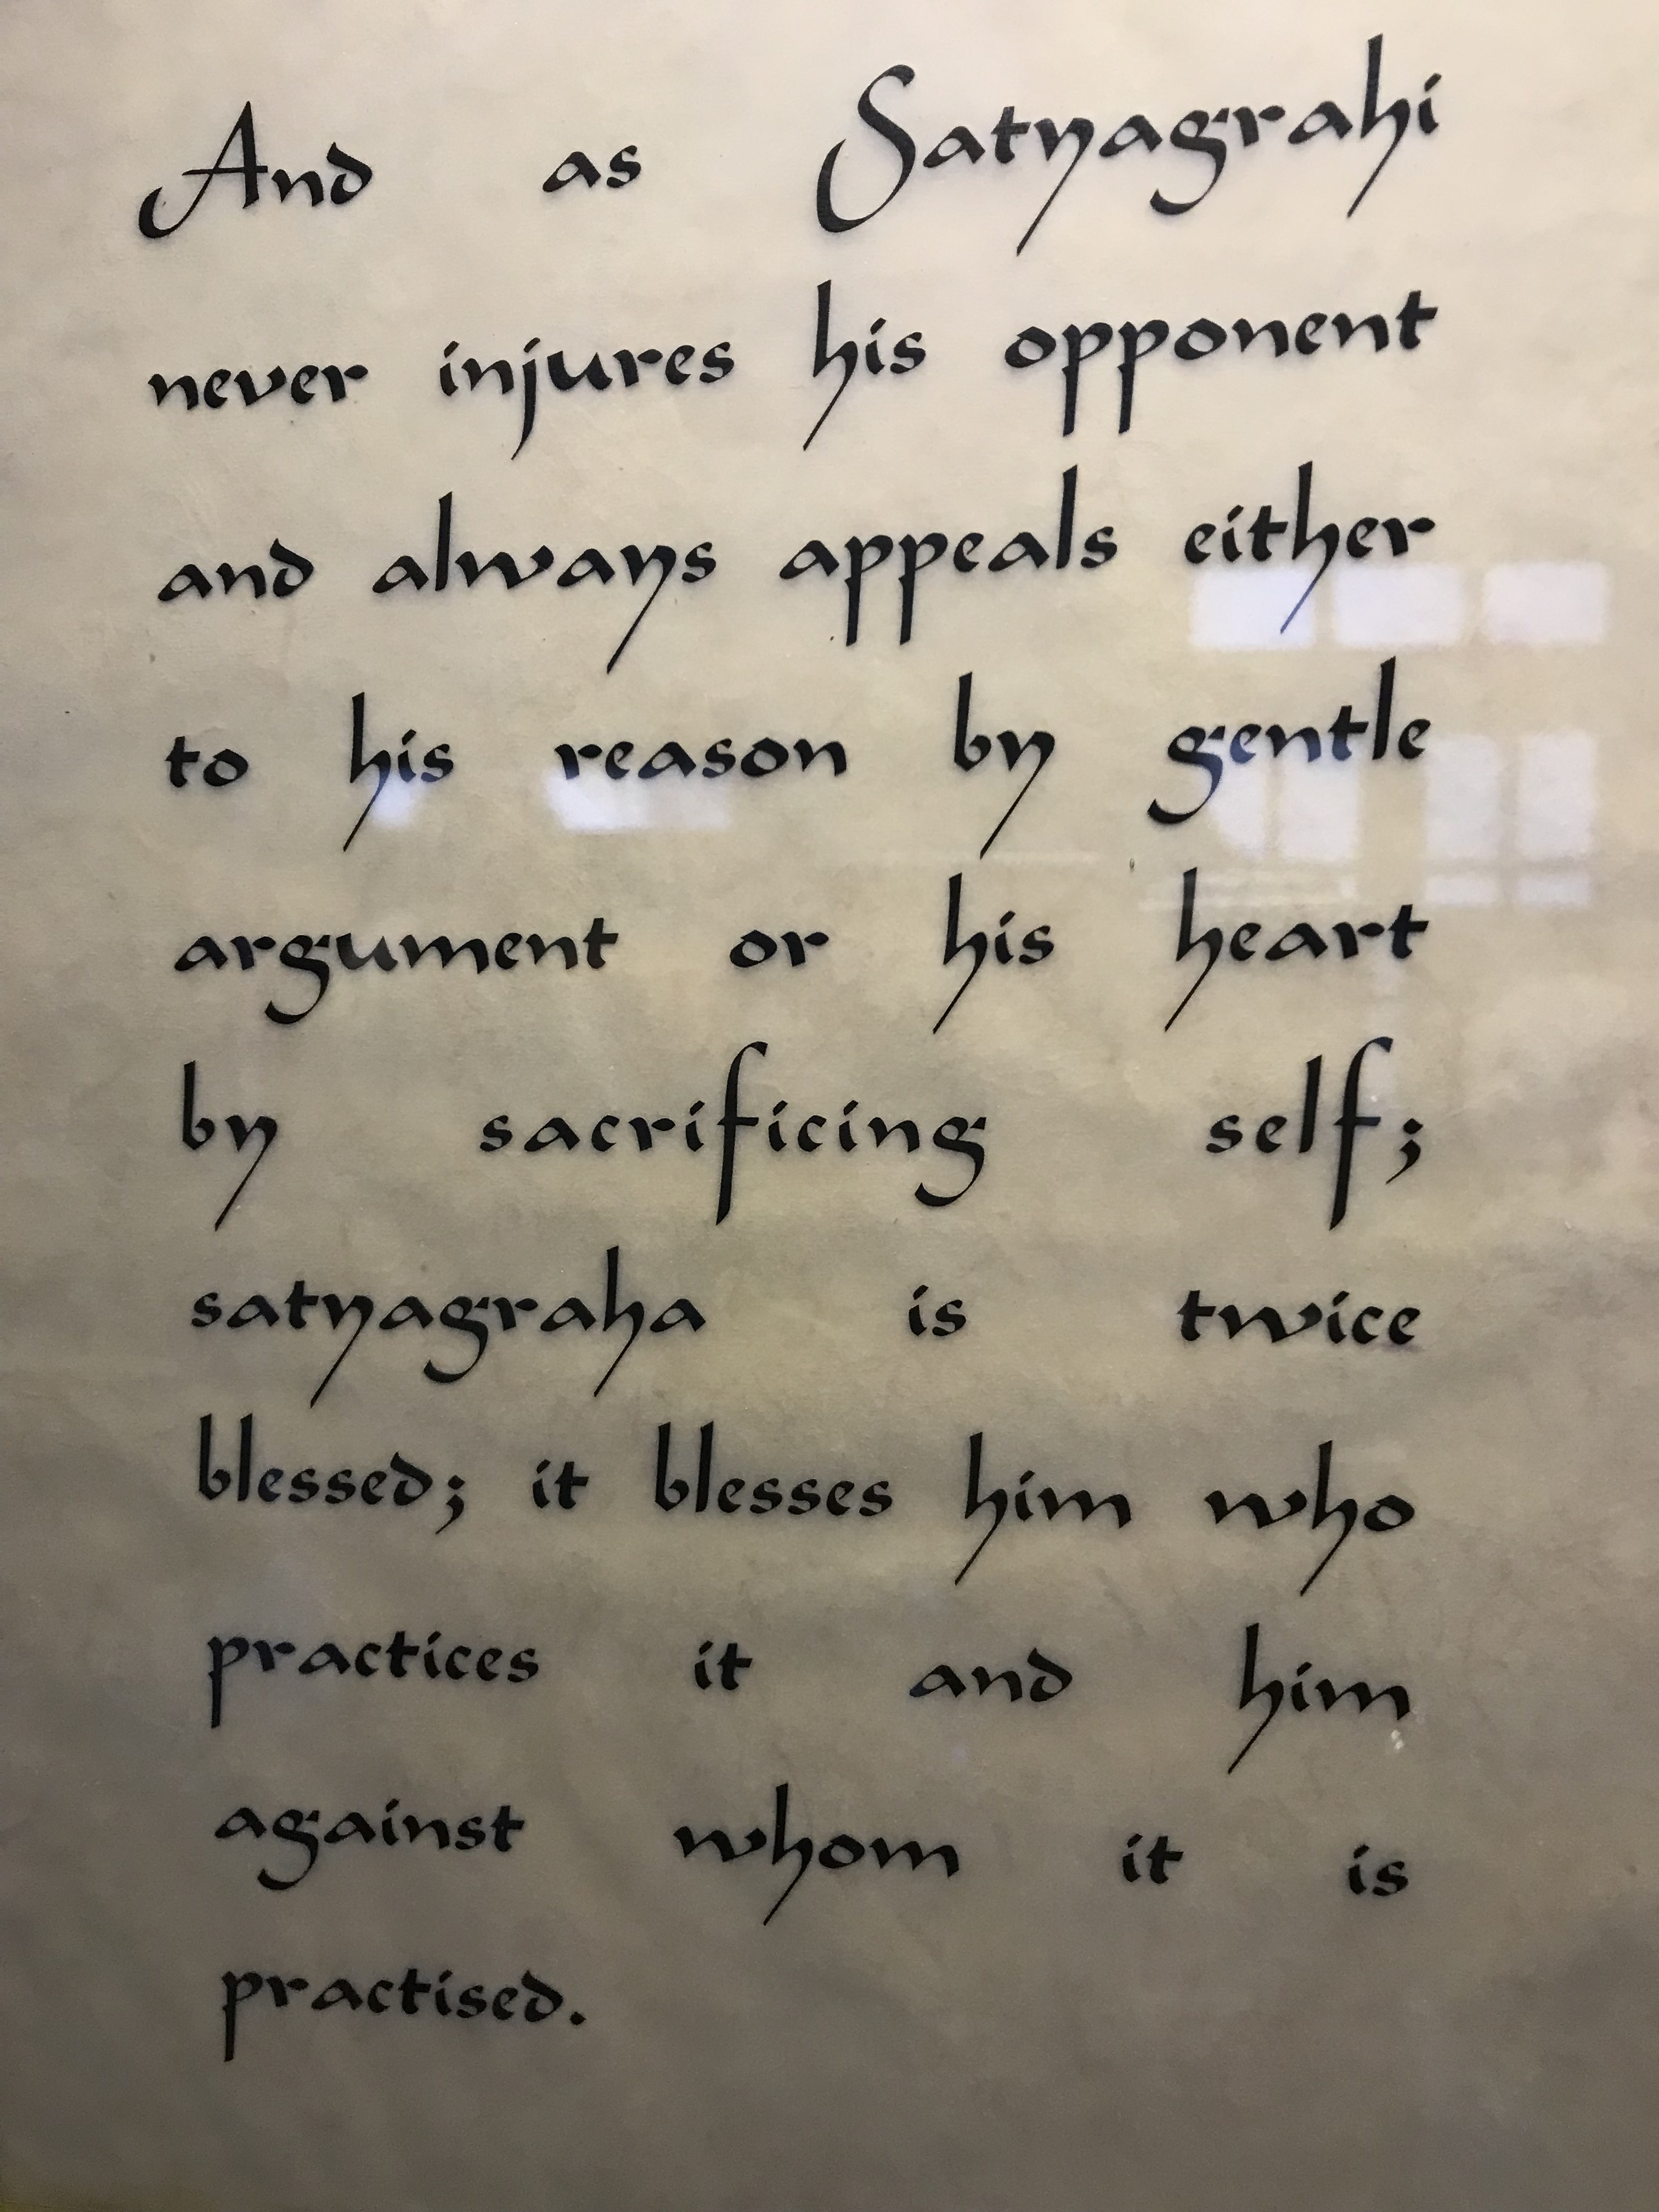 And as Satyagrahi
never injures his opponent
and always appeals either
to his reason by gentle
argument or his heart
by sacrificing self;
satyagraha is twice
blessed; it blesses him who
practices it and him
against whom it is
practised.